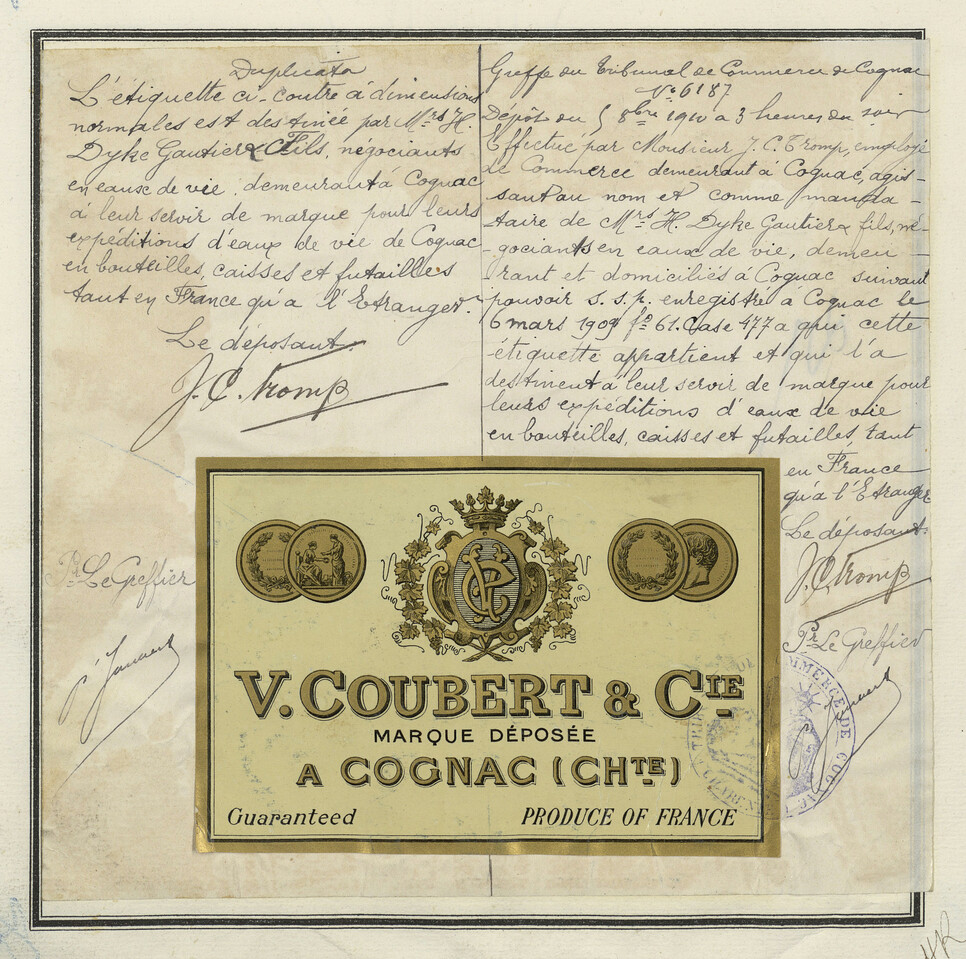 Duplicata
L'étiquette ci-contre à dimensions
normales est destinée par Mrs H.
Dyke Gautier & Fils, négociants
en eaux de vie, demeurant à Cognac
à leur servir de marque pour leurs
expéditions d'eaux de vie de Cognac
en bouteilles, caisses et futailles
tant en France qu'à l'Etranger.
Le déposant.
J. C. Tromp
Pr. Le Greffier
Greffe du Tribunal de Commerce de Cognac
No. 6187
Dépôt du 5 8bre 1910 à 3 heures du soir
Effectué par Monsieur J. C. Tromp, employé
de Commerce demeurant à Cognac, agis-
sant au nom et comme manda-
-taire de Mrs H. Dyke Gautier & fils, né-
-gociants en eaux de vie, demeu-
-rant et domiciliés à Cognac suivant
pouvoir s. s. p. enregistré à Cognac le
6 mars 1909 fo. 61. Case 477 a qui cette
étiquette appartient et qui l'a
destinent à leur servir de marque pour
leurs expéditions d'eaux de vie
en bouteilles, caisses et futailles, tant
en France
qu'à l'Etranger
Le déposant.
J. C. Tromp
Pr. Le Greffier
V. COUBERT & CIE
MARQUE DÉPOSÉE
A COGNAC (CHTE)
Guaranteed
PRODUCE OF FRANCE
COMMERCE DE COGNAC